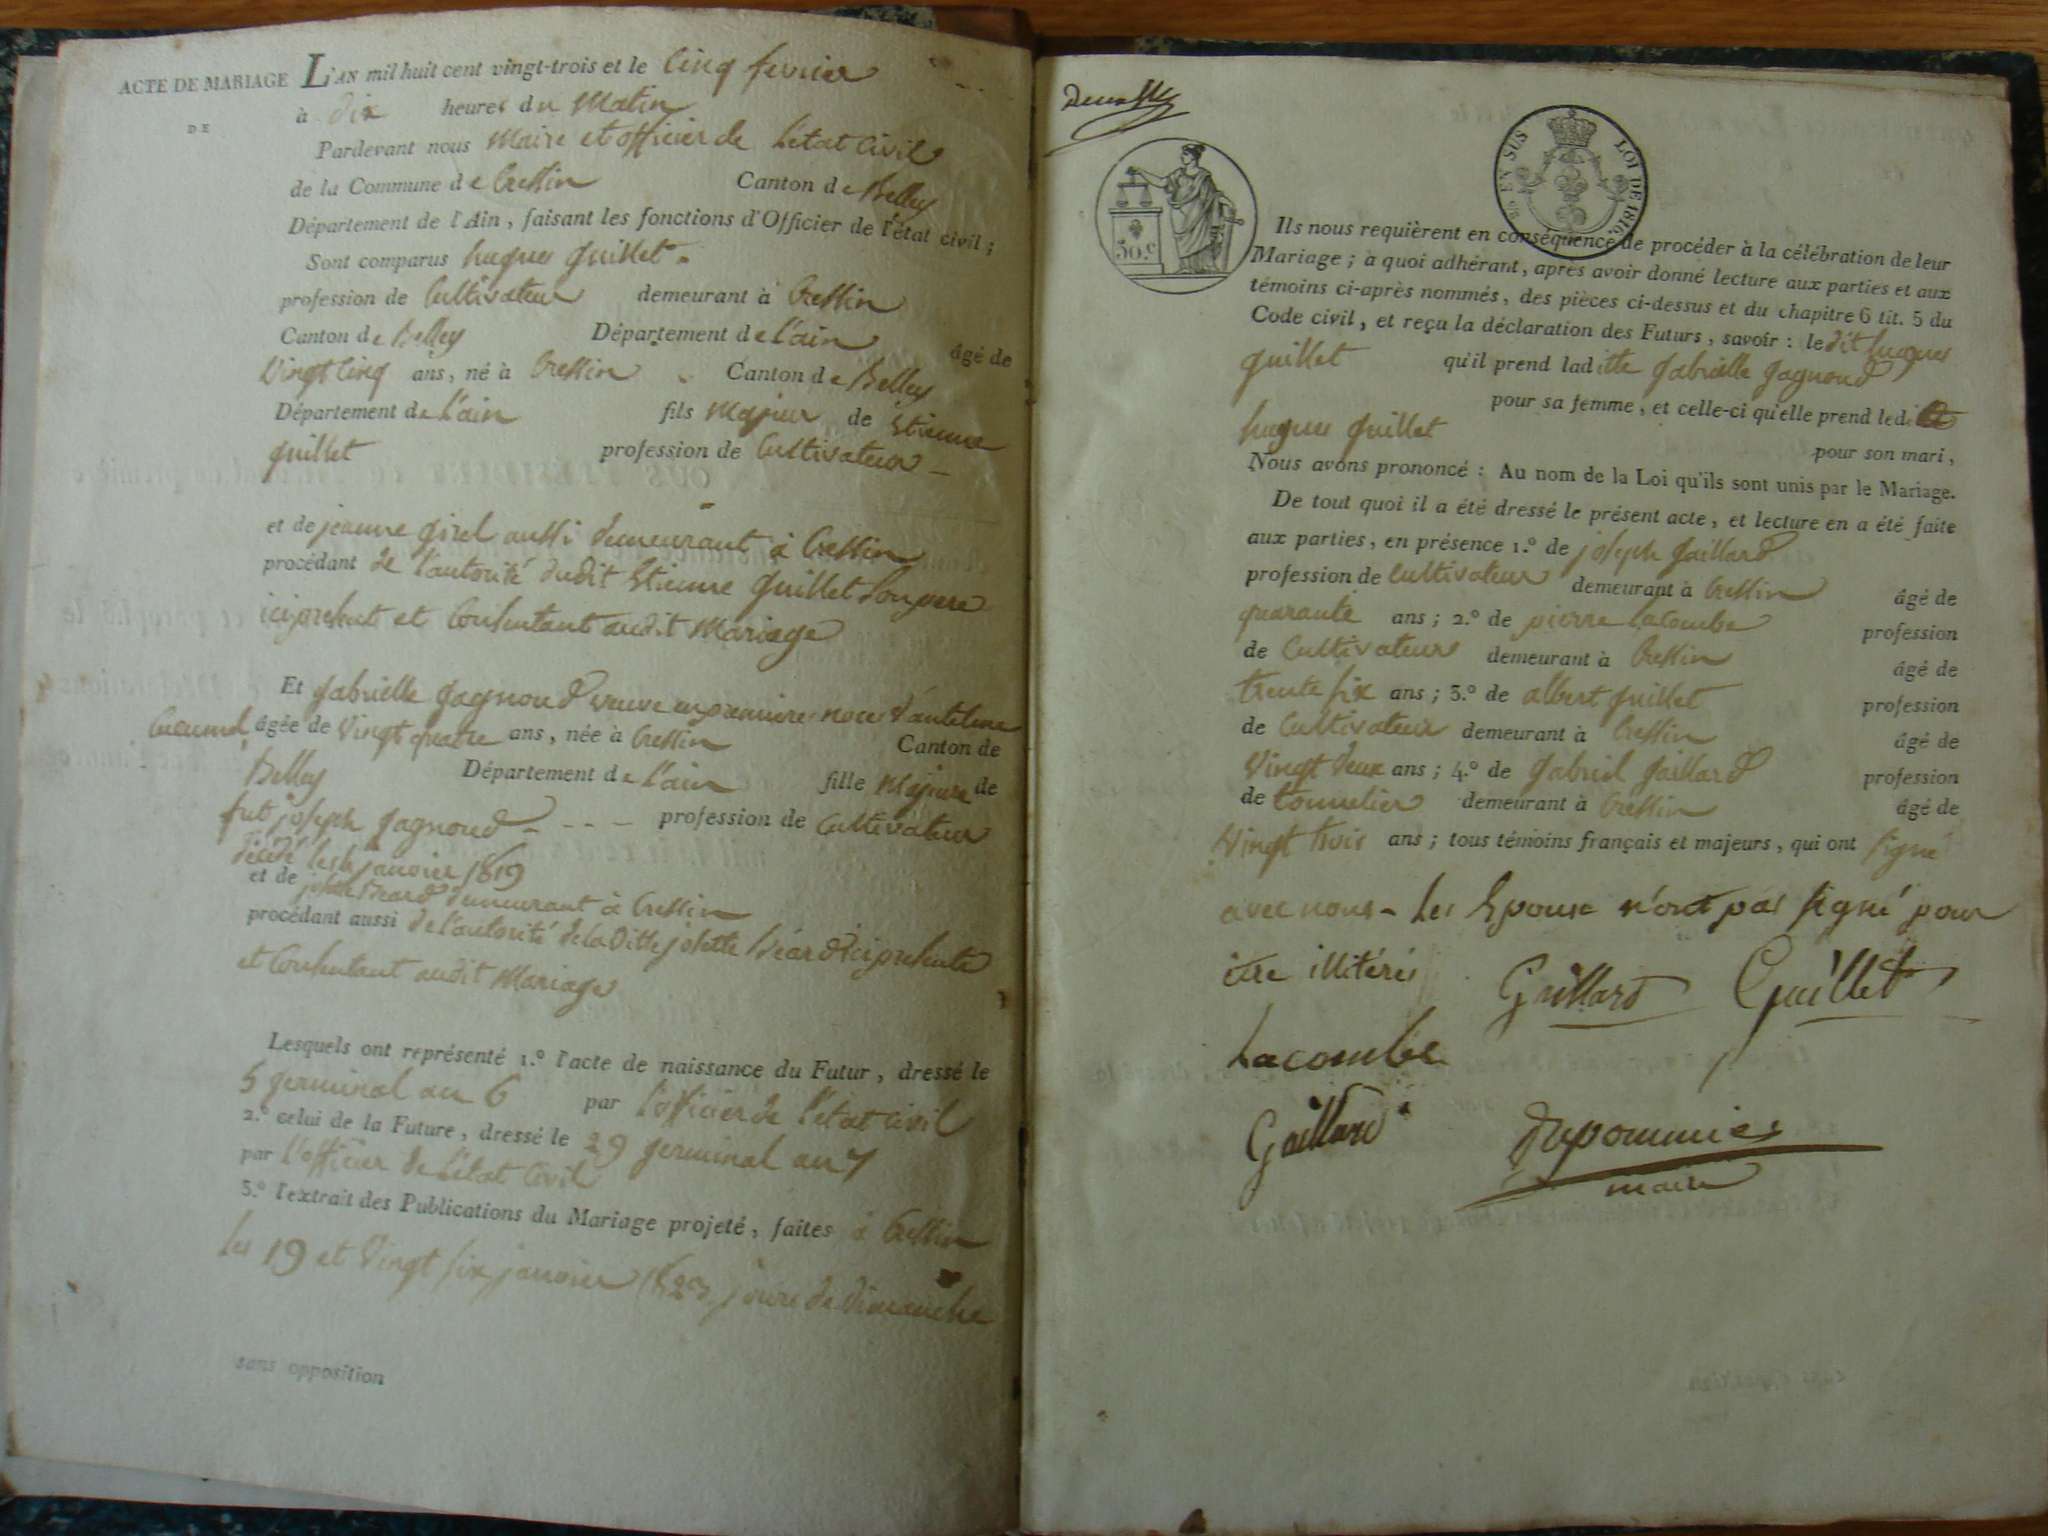 ACTE DE MARIAGE
DE
L'AN mil huit cent vingt-trois et le Cinq fevrier
à dix heures du Matin
Pardevant nous Maire et officier de L'état Civil
de la Commune de Cressin Canton de Belley
Département de l'Ain, faisant les fonctions d'Officier de l'état civil;
Sont comparus hugues guillet
profession de Cultivateur demeurant à Cressin
Canton de Belley Département de l'ain âgé de
Vingt Cinq ans, né à Cressin Canton de Belley
Département de l'ain fils Majeur de Etienne
guillet profession de Cultivateur
et de jeanne girel aussi demeurant à Cressin
procédant de l'autorité dudit Etienne guillet Son pere
ici present et Consentant audit Mariage
Et gabrielle gagnoud veuve en premiere noce d'antelme
âgée de Vingt quatre ans, née à Cressin Canton de
Belley Département de l'ain fille Majeure de
fut joseph gagnoud profession de Cultivateur
décédé le janvier 1819
et de josette Béard demeurant à Cressin
procédant aussi de l'autorité de la Ditte josette Béard ici presente
et Consentant audit Mariage
Lesquels ont représenté 1.º l'acte de naissance du Futur, dressé le
5 germinal an 6 par l'officier de l'état civil
2.º celui de la Future, dressé le 29 germinal an 7
par l'officier de l'état Civil
3.º l'extrait des Publications du Mariage projeté, faites à Cressin
les 19 et Vingt six janvier 1823, jours de dimanche
sans opposition
50 c.
EN SUS LOI DE 1816.
Ils nous requièrent en conséquence de procéder à la célébration de leur
Mariage; à quoi adhérant, après avoir donné lecture aux parties et aux
témoins ci-après nommés, des pièces ci-dessus et du chapitre 6 tit. 5 du
Code civil, et reçu la déclaration des Futurs, savoir: le dit hugues
guillet qu'il prend laditte gabrielle gagnoud
pour sa femme, et celle-ci qu'elle prend ledit
hugues guillet pour son mari,
Nous avons prononcé: Au nom de la Loi qu'ils sont unis par le Mariage.
De tout quoi il a été dressé le présent acte, et lecture en a été faite
aux parties, en présence 1.º de joseph gaillard
profession de Cultivateur demeurant à Cressin âgé de
quarante ans; 2.º de pierre lacombe profession
de Cultivateur demeurant à Cressin âgé de
trente six ans; 3.º de albert guillet profession
de Cultivateur demeurant à Cressin âgé de
Vingt deux ans; 4.º de gabriel gaillard profession
de tonnelier demeurant à Cressin âgé de
Vingt trois ans; tous témoins français et majeurs, qui ont signé
avec nous - Les Epoux n'ont pas signé pour
être illitérés Gaillard Guillet
Lacombe
Gaillard Depommier
maire